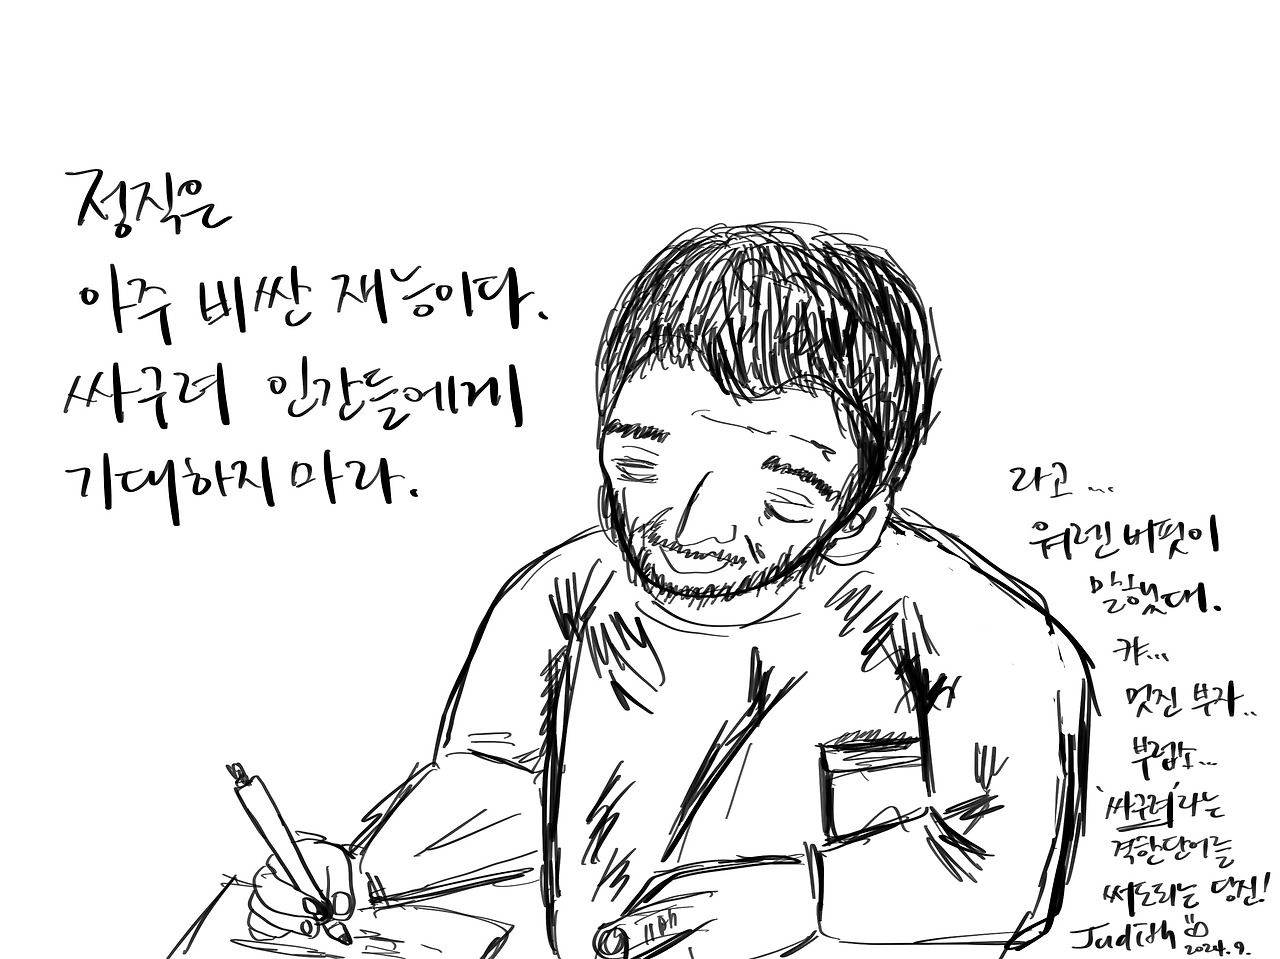 정직은
아주 비싼 재능이다.
싸구려 인간들에게
기대하지 마라.
라고 ...
워렌 버핏이
말했대.
캬...
멋진 부자..
부럽소...
'싸구려'라는
격한단어를
써도되는 당신!
Judith
2024.9.